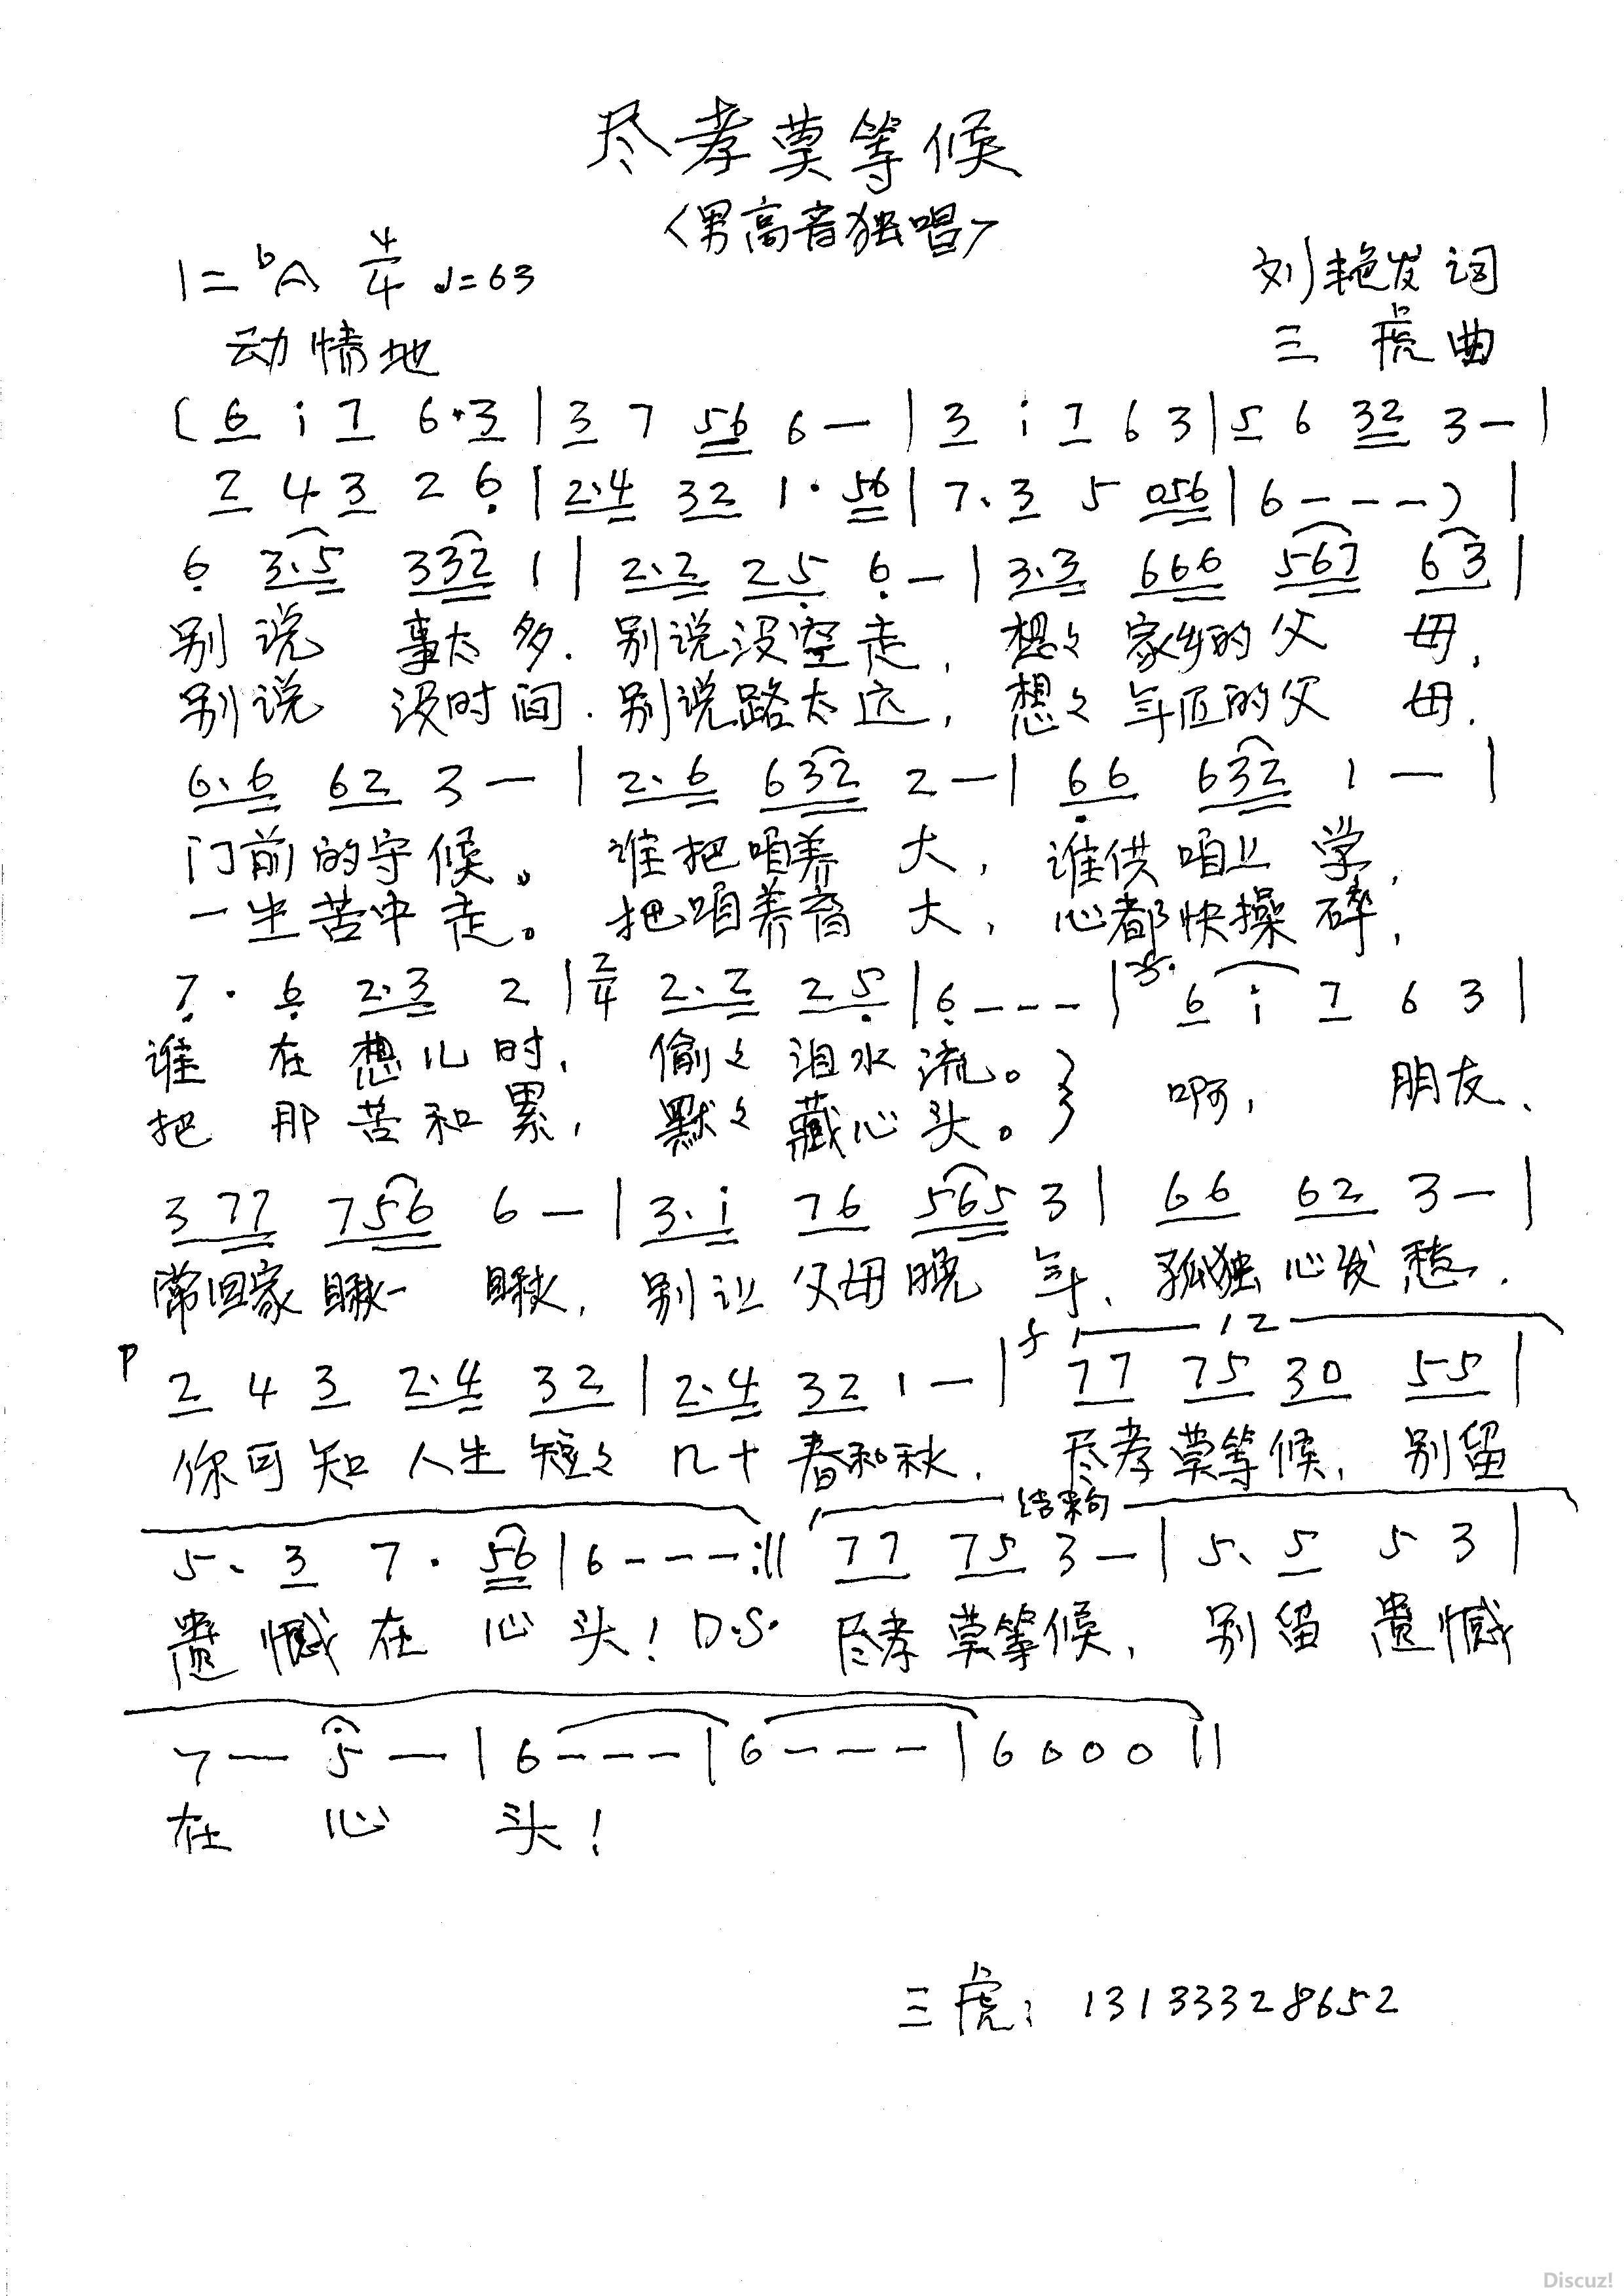 尽孝莫等候
<男高音独唱>
1=bA 4/4 ♩=63
刘艳发词
动情地
三虎曲
(6 i 7 6·3|3 7 56 6—|3 i 7 6 3|5 6 32 3—|
2 4 3 2 6|2·4 32 1·56|7·3 5 056|6---)|
6 3·5 332 1|2·2 25 6—|3·3 666 567 63|
别说 事太多.别说没空走,想々家乡的父 母,
别说 没时间.别说路太远,想々年迈的父 母.
6·6 62 3—|2·6 632 2—|66 632 1—|
门前的守候。谁把咱养 大,谁供咱上 学,
一生苦中走。把咱养育 大,心都快操碎,
7·6 2·3 2|2/4 2·2 25|6---|6 i 7 6 3|
谁 在想儿时,偷々泪水流。} 啊, 朋友、
把 那苦和累,默々藏心头。
377 756 6—|3·i 76 565 3|66 62 3—|
常回家瞅一 瞅,别让父母晚 年、孤独心发愁.
12
P 2 4 3 2·4 32|2·4 32 1—|f 77 75 30 55|
你可知人生短々几十春和秋.尽孝莫等候,别留
结束句
5·3 7·56|6---:|| 77 75 3—|5·5 5 3|
遗憾在心头!D.S. 尽孝莫等候,别留遗憾
7—5—|6---|6---|6000||
在心头!
三虎:13133328652
Discuz!